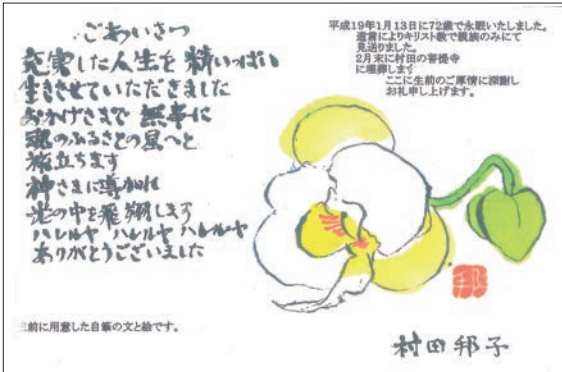 ごあいさつ
充実した人生を精いっぱい
生きさせていただきました
おかげさまで無事に
魂のふるさとの星へと
旅立ちます
神さまに導かれ
光の中を飛翔します
ハレルヤ ハレルヤ ハレルヤ
ありがとうございました
平成19年1月13日に72歳で永眠いたしました。
遺言によりキリスト教で親族のみにて
見送りました。
2月末に村田の菩提寺
に埋葬します
ここに生前のご厚情に深謝し
お礼申し上げます。
前に用意した自筆の文と絵です。
邦
村田邦子